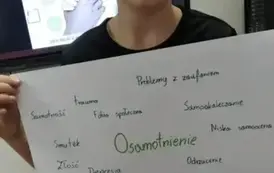 Problemy z zaufaniem
trauma
Samotność
Fobia społeczna
Samookaleczanie
Niska samoocena
Smutek
Osamotnienie
Złość
Odrzucenie
Depresja